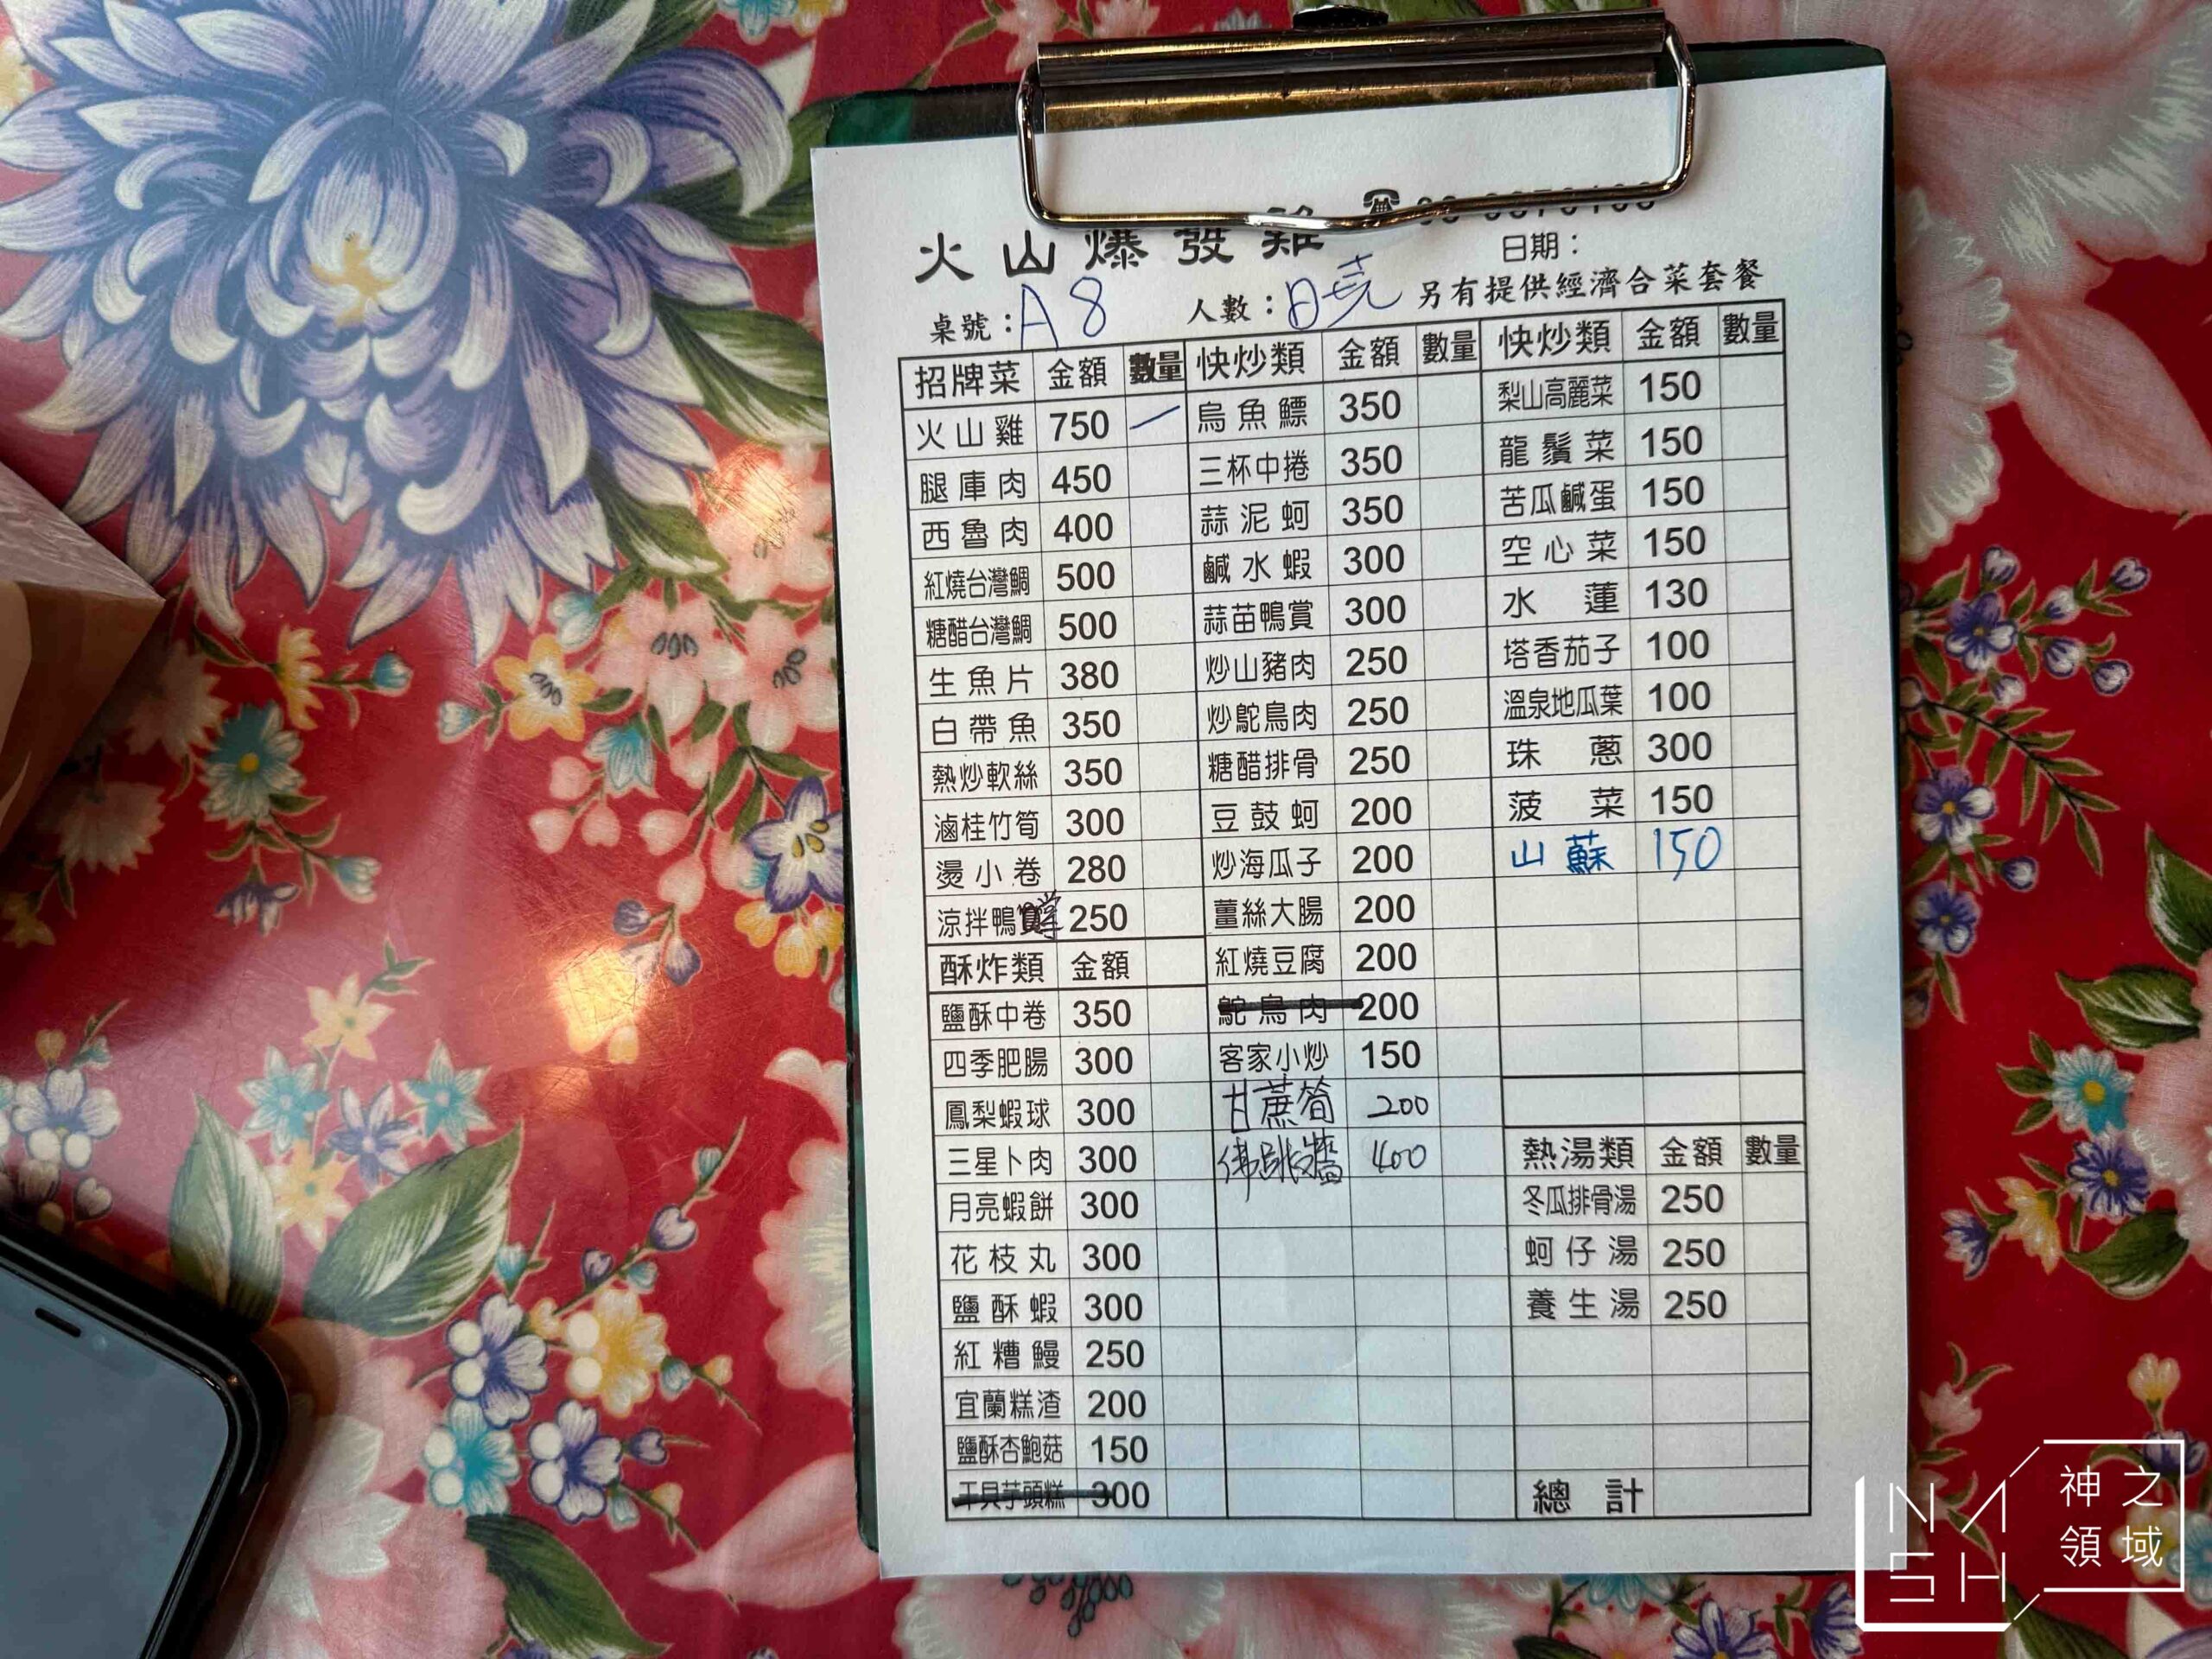 火山爆發雞
日期：
桌號：A8 人數： 另有提供經濟合菜套餐
招牌菜 金額 數量 快炒類 金額 數量 快炒類 金額 數量
火山雞 750 一 烏魚鰾 350 梨山高麗菜 150
腿庫肉 450 三杯中捲 350 龍鬚菜 150
西魯肉 400 蒜泥蚵 350 苦瓜鹹蛋 150
紅燒台灣鯛 500 鹹水蝦 300 空心菜 150
糖醋台灣鯛 500 蒜苗鴨賞 300 水蓮 130
生魚片 380 炒山豬肉 250 塔香茄子 100
白帶魚 350 炒鴕鳥肉 250 溫泉地瓜葉 100
熱炒軟絲 350 糖醋排骨 250 珠蔥 300
滷桂竹筍 300 豆鼓蚵 200 菠菜 150
燙小卷 280 炒海瓜子 200 山蘇 150
涼拌鴨 250 薑絲大腸 200
酥炸類 金額 紅燒豆腐 200
鹽酥中卷 350 鴕鳥肉 200
四季肥腸 300 客家小炒 150
鳳梨蝦球 300 甘蔗筍 200
三星卜肉 300 佛跳牆 400 熱湯類 金額 數量
月亮蝦餅 300 冬瓜排骨湯 250
花枝丸 300 蚵仔湯 250
鹽酥蝦 300 養生湯 250
紅糟鰻 250
宜蘭糕渣 200
鹽酥杏鮑菇 150
干貝芋頭糕 300 總計
NASH 神之領域